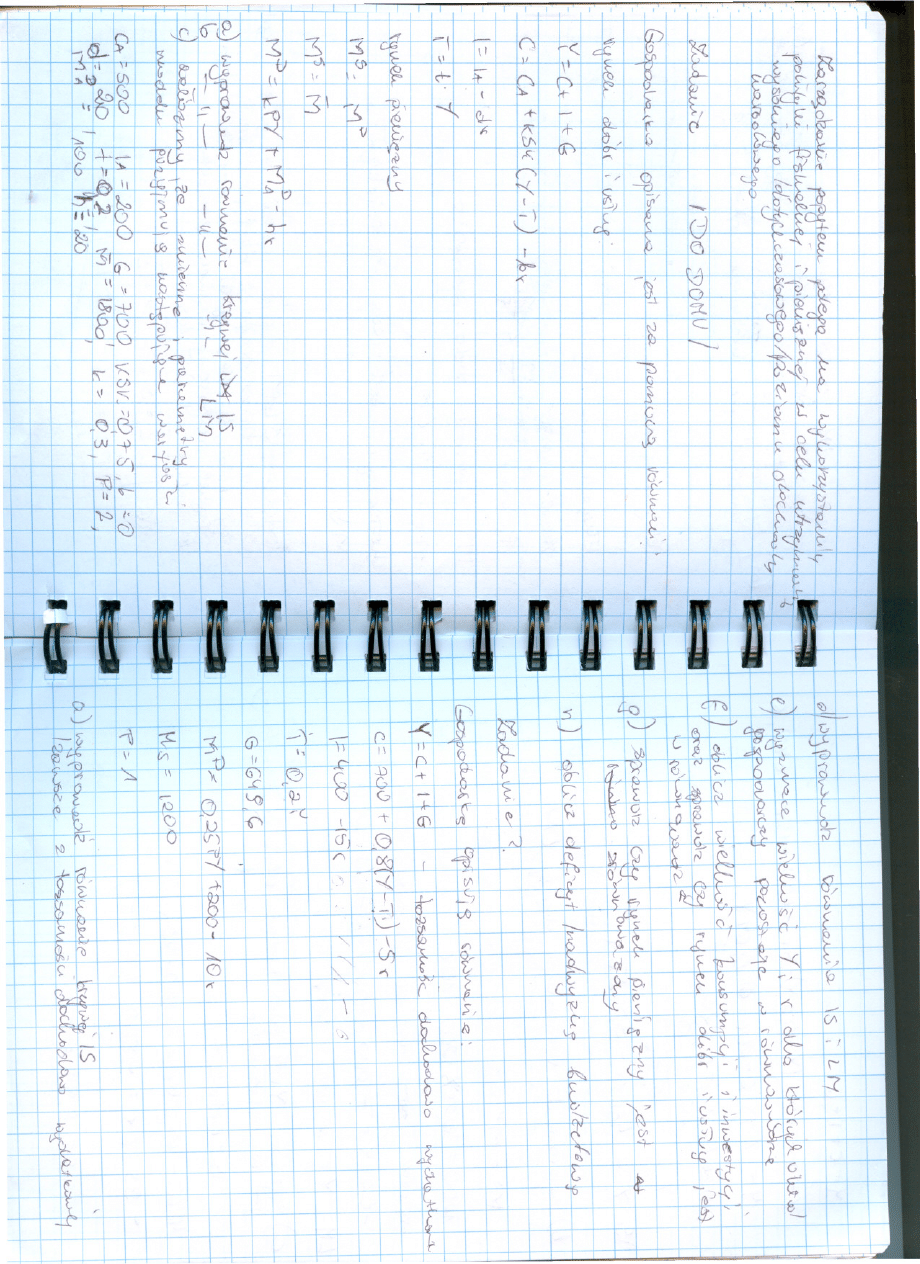 Zarządzanie popytem polega na wykorzystaniu
polityki fiskalnej i pieniężnej w celu utrzymania
wysokiego
Zadanie /DO DOMU/
Gospodarka opisana jest za pomocą równań:
rynek dóbr i usług:
Y = C + I + G
C = CA + KSK (Y - T) - br
I = IA - dr
T = t · Y
rynek pieniężny
Mˢ = Mᴰ
Mˢ = M̄
Mᴰ = kPY + MAᴰ - hr
a) wyprowadź równanie krzywej IS
b) - || - - || - - || - LM
c) załóżmy że zmienne i parametry
modelu przyjmują następujące wartości:
CA = 500 IA = 200 G = 700 KSK = 0,75, b = 0
d = 20, t = 0,2, M̄ = 1800, k = 0,3, P = 2,
MAᴰ = 100, h = 20
d) wyprowadź równania IS i LM
e) wyznacz wielkość Y i r dla których układ
gospodarczy pozostaje w równowadze
f) oblicz wielkość konsumpcji i inwestycji
oraz sprawdź czy rynek dóbr i usług jest
w równowadze
g) sprawdź czy rynek pieniężny jest
zrównoważony
h) oblicz deficyt/nadwyżkę budżetową
Zadanie 2
Gospodarkę opisują równania:
Y = C + I + G - tożsamość dochodowo wydatkowa
C = 700 + 0,8(Y - T) - 5r
I = 400 - 15r
T = 0,2Y
G = 649,6
Mᴰ = 0,25PY + 200 - 10r
Ms = 1200
P = 1
a) wyprowadź równanie krzywej IS
/zawsze z tożsamości dochodowo wydatkowej